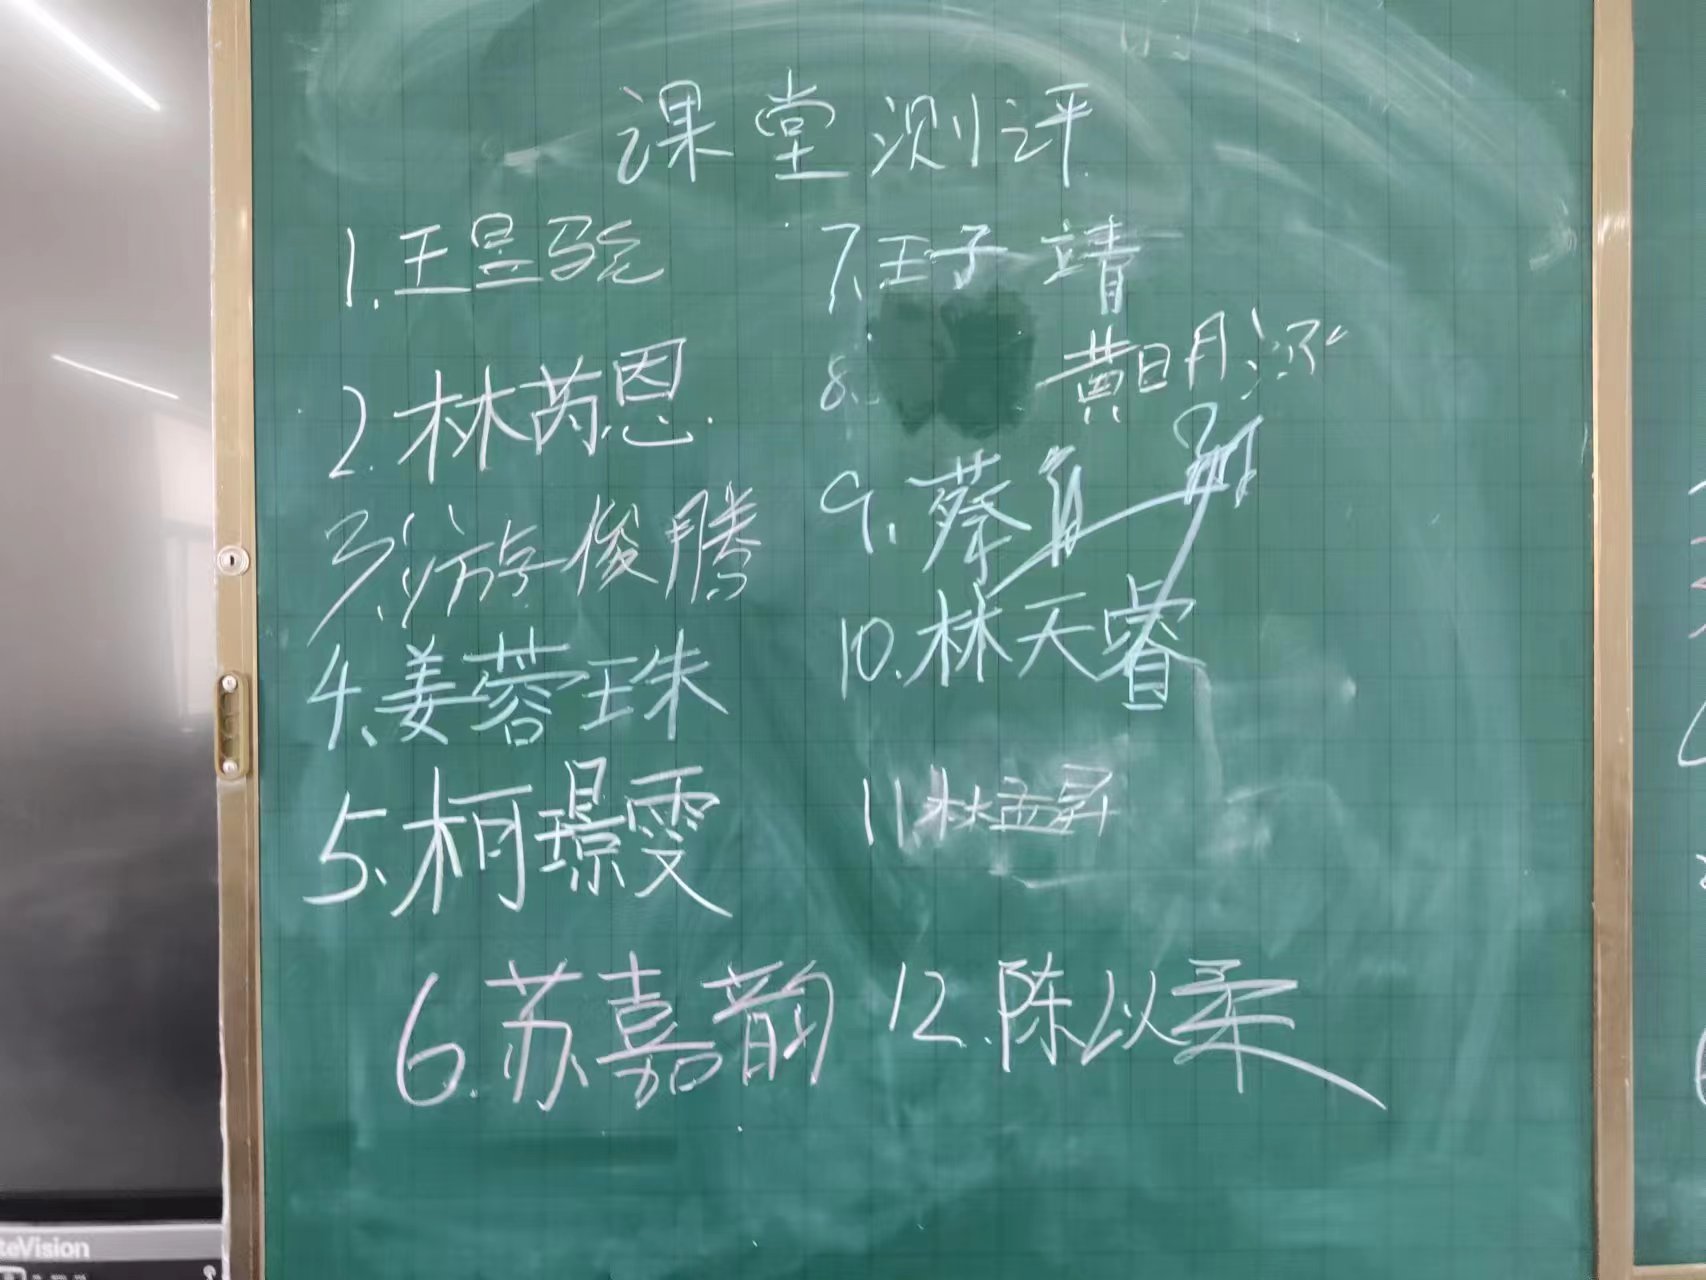 课堂测评
1.王昱骁
2.林芮恩
3.游俊腾
4.姜蓉珠
5.柯璟雯
6.苏嘉韵
7.王子靖
8.黄明
9.蔡
10.林天睿
11.林孟昇
12.陈以柔
teVision